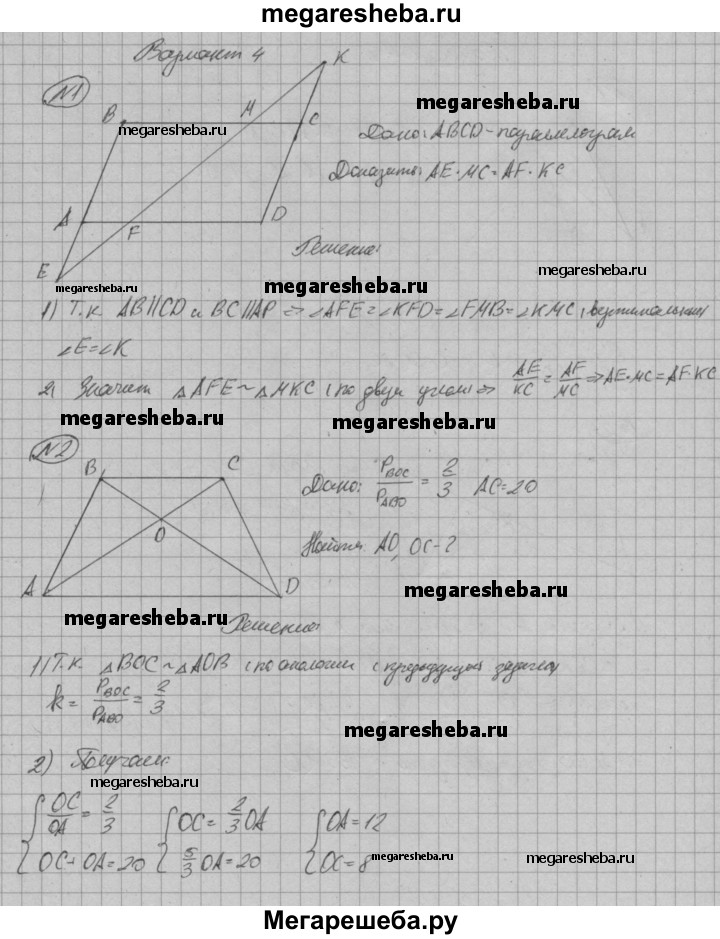 megaresheba.ru
Вариант 4
№1
K
B
M
C
megaresheba.ru
megaresheba.ru
Дано: ABCD - параллелограм
Доказать: AE · MC = AF · KC
A
F
D
E
Решение:
megaresheba.ru
megaresheba.ru
megaresheba.ru
1) Т.к AB||CD и BC||AP => ∠AFE = ∠KFD = ∠FMB = ∠KMC (вертикальные)
∠E = ∠K
2) Значит △AFE ~ △MKC (по двум углам) => AE/KC = AF/MC => AE·MC = AF·KC
megaresheba.ru
megaresheba.ru
№2
B
C
Дано: P BOC / P ABO = 2/3 AC = 20
O
Найти: AO, OC - ?
A
D
megaresheba.ru
megaresheba.ru
megaresheba.ru
Решение:
1) Т.к △BOC ~ △AOB (по аналогии с предыдущей задачей)
k = P BOC / P ABO = 2/3
megaresheba.ru
2) Получаем:
megaresheba.ru
{ OC/OA = 2/3 { OC = 2/3 OA { OA = 12
OC + OA = 20 5/3 OA = 20 OC = 8
megaresheba.ru
megaresheba.ru
Мегарешеба.ру